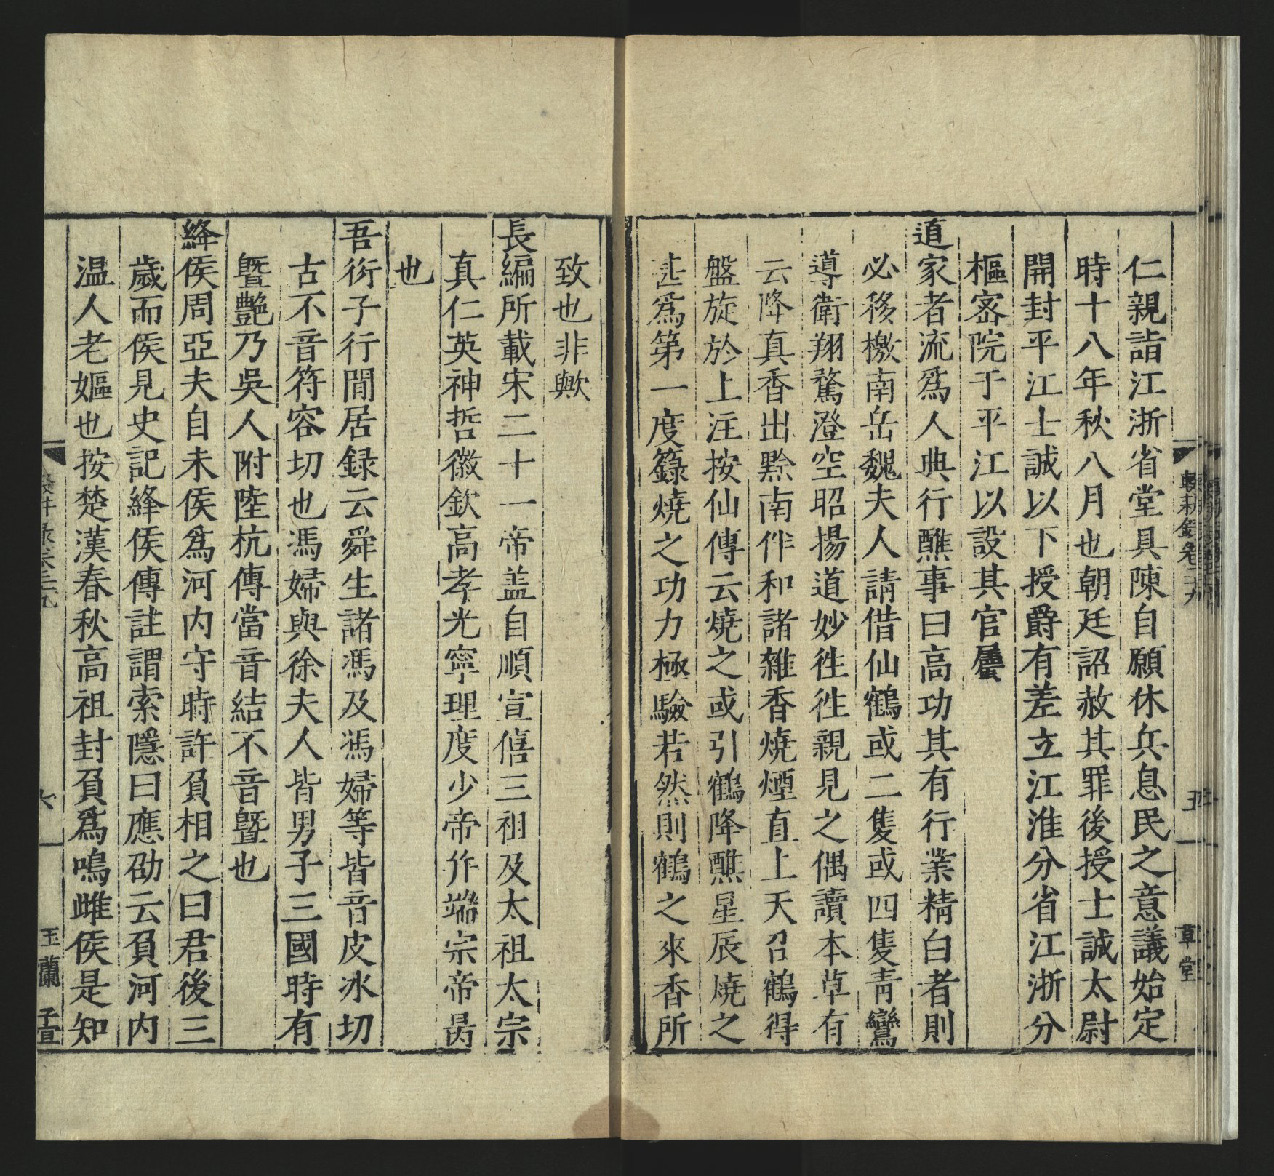 仁親詣江浙省堂具陳自願休兵息民之意議始定
時十八年秋八月也朝廷詔赦其罪後授士誠太尉
開封平江士誠以下授爵有差立江淮分省江浙分
樞密院于平江以設其官屬
道家者流爲人典行醮事曰高功其有行業精白者則
必移檄南岳魏夫人請借仙鶴或二隻或四隻青鸞
導衛翔騖澄空昭揚道妙徃徃親見之偶讀本草有
云降真香出黔南伴和諸雜香燒煙直上天召鶴得
盤旋於上注按仙傳云燒之或引鶴降醮星辰燒之
甚爲第一度籙燒之功力極驗若然則鶴之來香所
致也非歟
長編所載宋二十一帝盖自順宣僖三祖及太祖太宗
真仁英神哲徽欽高孝光寧理度少帝作端宗帝昺
也
吾衍子行閒居録云舜生諸馮及馮婦等皆音皮冰切
古不音符容切也馮婦與徐夫人皆男子三國時有
曁艷乃吳人附陸杭傳當音結不音曁也
絳侯周亞夫自未侯爲河内守時許負相之曰君後三
歲而侯見史記絳侯傳註謂索隱曰應劭云負河内
温人老嫗也按楚漢春秋高祖封負爲鳴雌侯是知
六
玉蘭